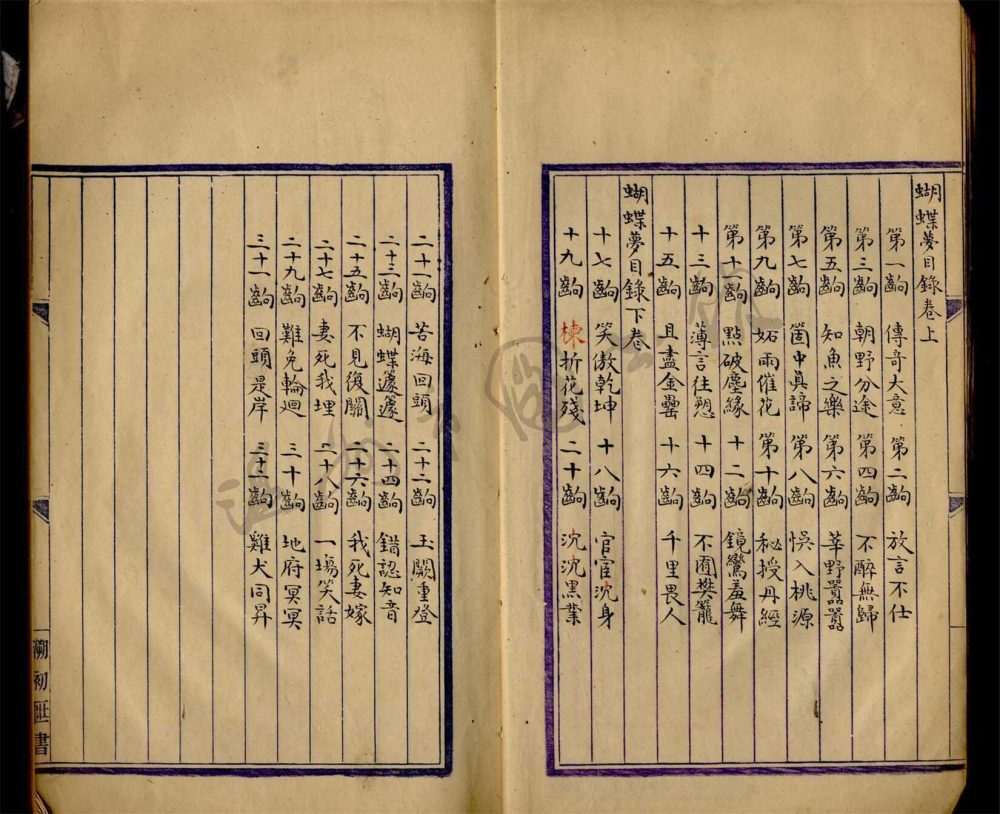 蝴蝶夢目錄卷上
第一齣　傳奇大意　第二齣　放言不仕
第三齣　朝野分途　第四齣　不醉無歸
第五齣　知魚之樂　第六齣　莘野囂囂
第七齣　箇中眞諦　第八齣　悞入桃源
第九齣　妬雨催花　第十齣　秘授丹經
第十一齣　點破塵緣　十二齣　鏡鸞羞舞
十三齣　薄言往愬　十四齣　不囿樊籠
十五齣　且盡金罍　十六齣　千里畏人
蝴蝶夢目錄下卷
十七齣　笑傲乾坤　十八齣　宦官沈身
十九齣　棟折花殘　二十齣　沉沉黑業
二十一齣　苦海回頭　二十二齣　玉闕重登
二十三齣　蝴蝶蘧蘧　二十四齣　錯認知音
二十五齣　不見復關　二十六齣　我死妻嫁
二十七齣　妻死我埋　二十八齣　一塲笑話
二十九齣　難免輪廻　三十齣　地府冥冥
三十一齣　回頭是岸　三十二齣　雞犬同昇
溯初 書